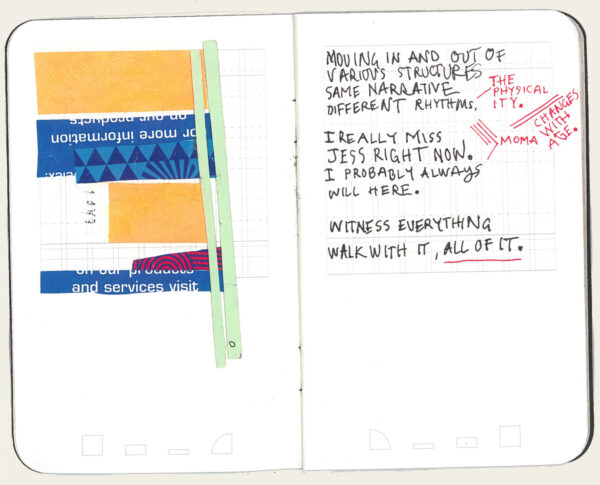 or more information
on our products
on our products
and services visit
MOVING IN AND OUT OF
VARIOUS STRUCTURES
SAME NARRATIVE
DIFFERENT RHYTHMS.
THE
PHYSICAL
ITY.
CHANGES
WITH
AGE.
I REALLY MISS
JESS RIGHT NOW.
I PROBABLY ALWAYS
WILL HERE.
MOMA
WITNESS EVERYTHING
WALK WITH IT, ALL OF IT.